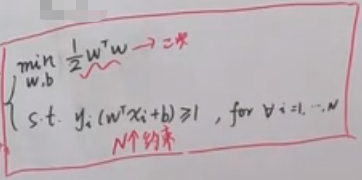 min 1/2 wᵀw → 二次
w,b
s.t. yᵢ(wᵀxᵢ+b) ≥ 1 , for ∀ i=1,…,N
N个约束